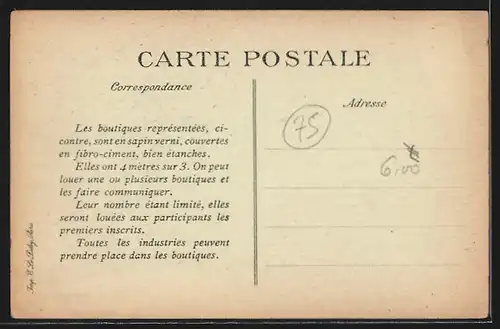 CARTE POSTALE
Correspondance
Adresse
75
6,00
Les boutiques représentées, ci-
contre, sont en sapin verni, couvertes
en fibro-ciment, bien étanches.
Elles ont 4 mètres sur 3. On peut
louer une ou plusieurs boutiques et
les faire communiquer.
Leur nombre étant limité, elles
seront louées aux participants les
premiers inscrits.
Toutes les industries peuvent
prendre place dans les boutiques.
Imp.